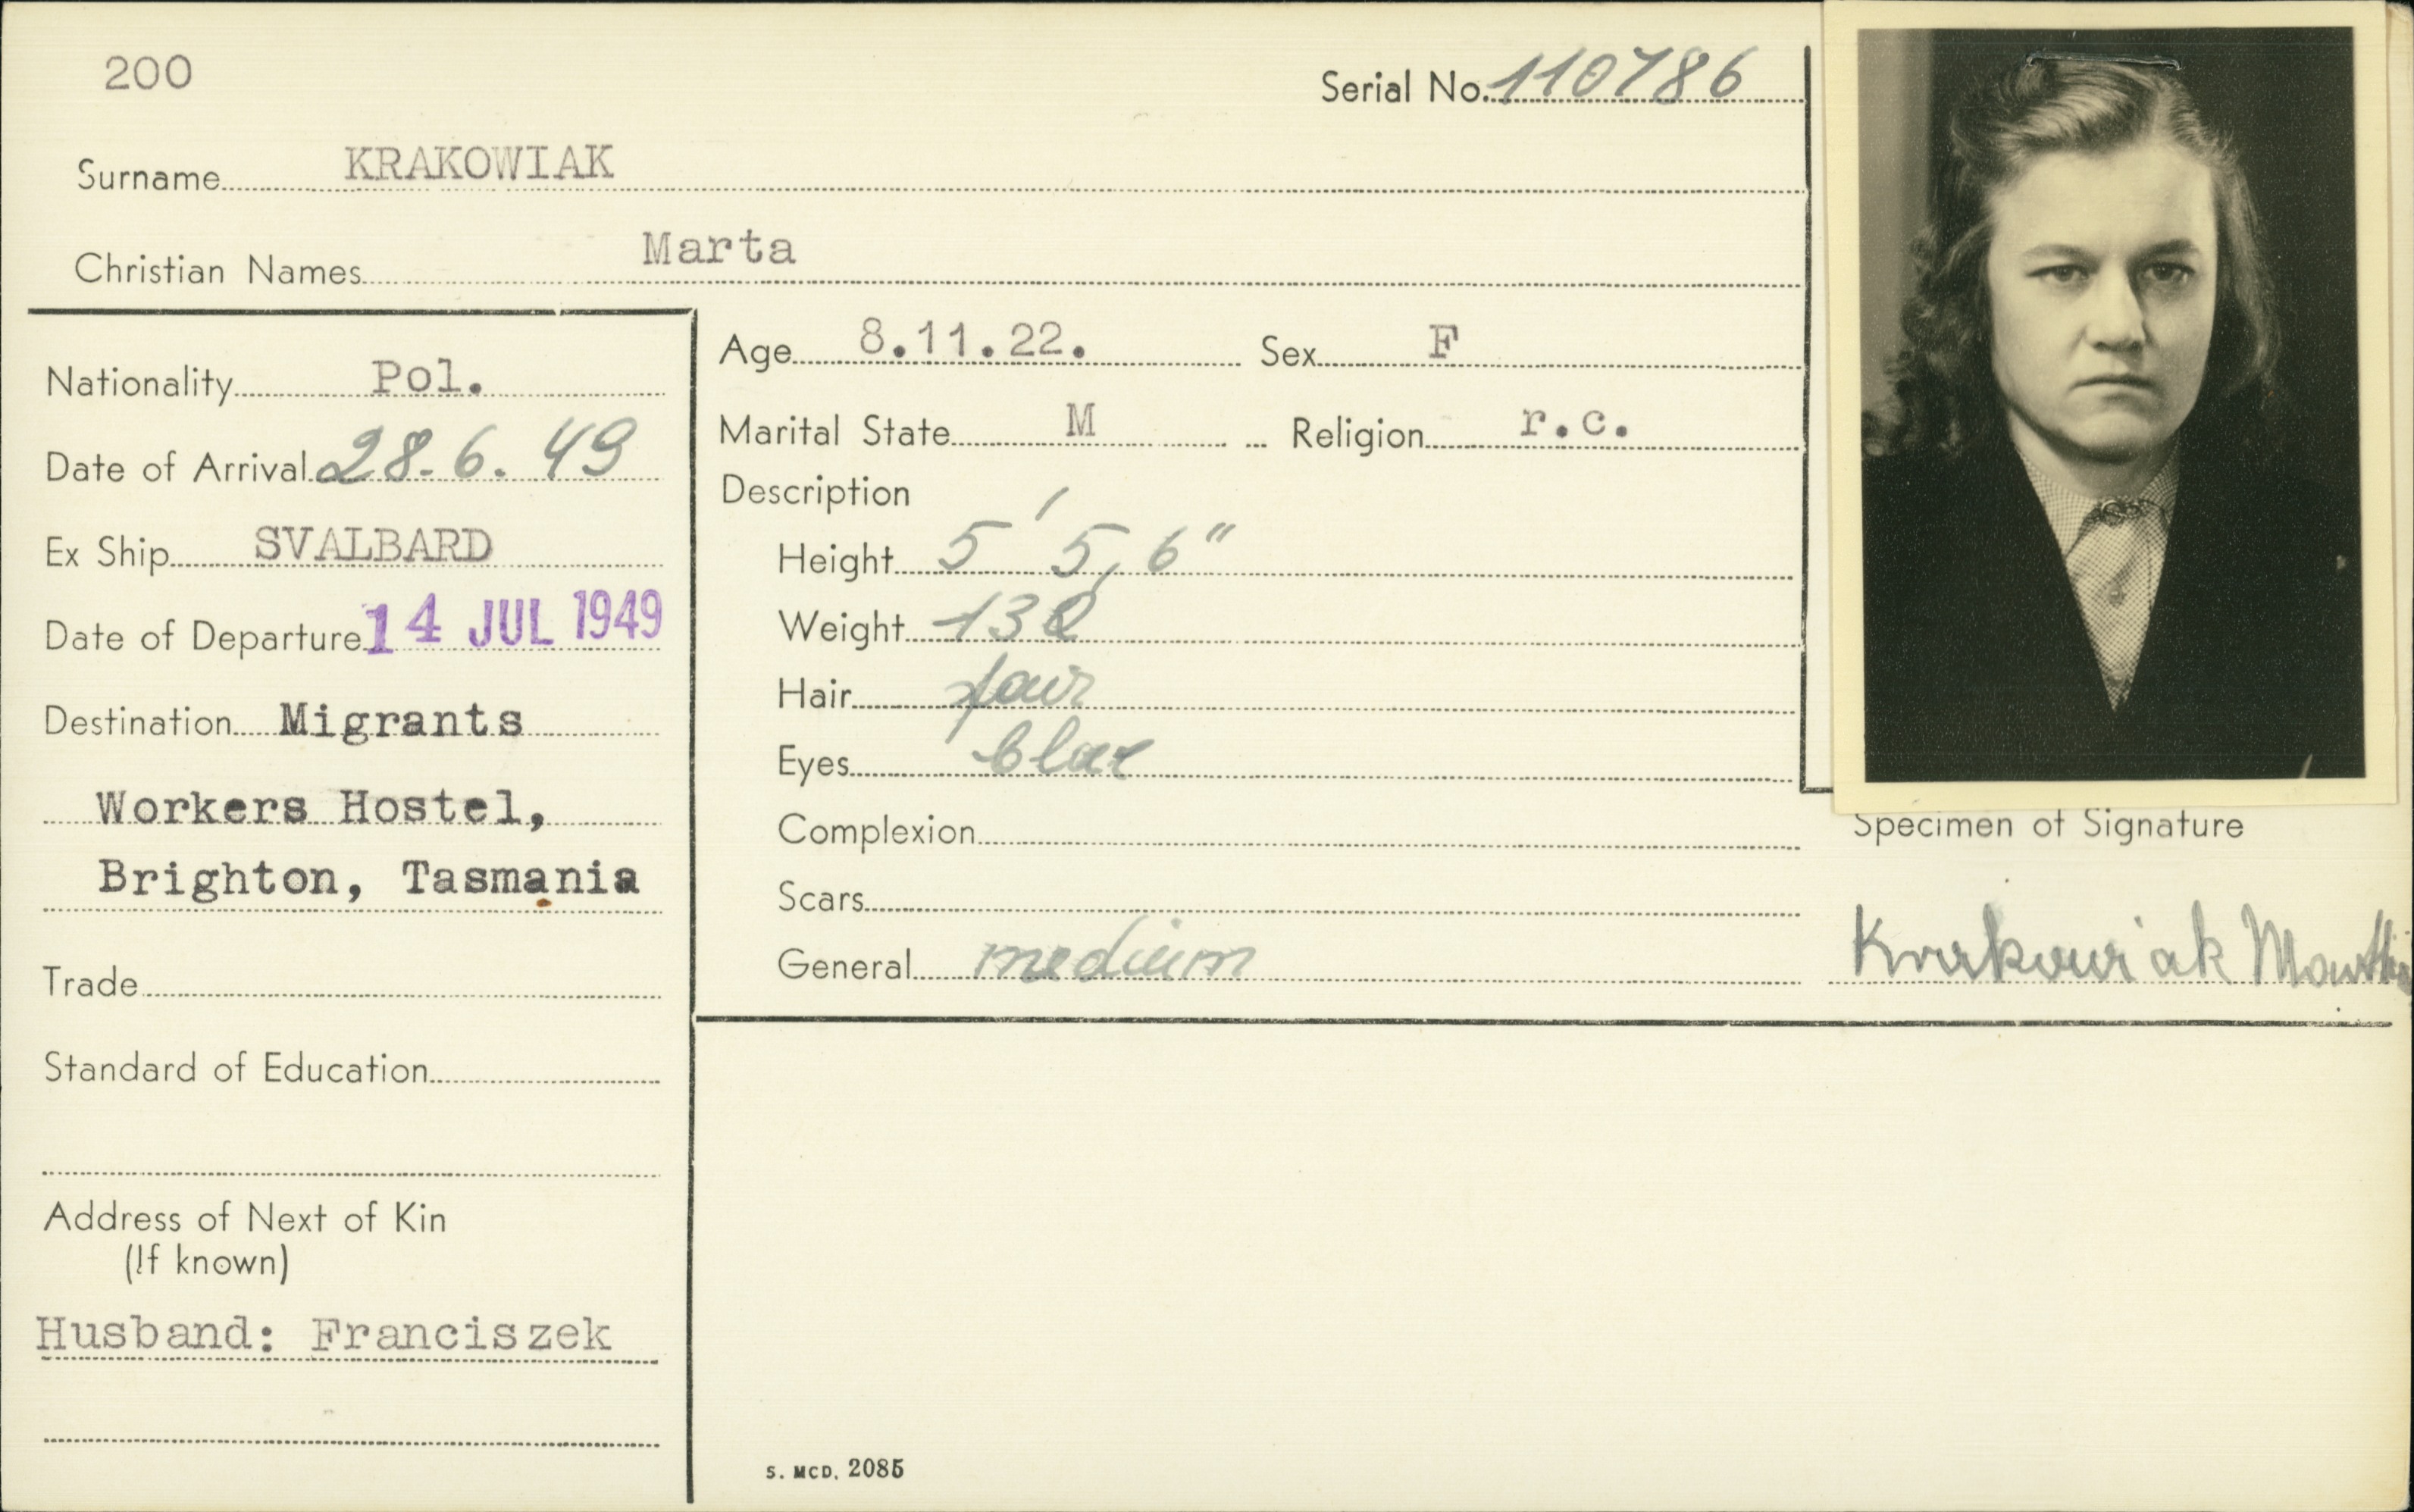 200
Serial No. 110786
Surname KRAKOWIAK
Christian Names Marta
Nationality Pol.
Date of Arrival 28.6.49
Ex Ship SVALBARD
Date of Departure 14 JUL 1949
Destination Migrants
Workers Hostel,
Brighton, Tasmania
Trade
Standard of Education
Address of Next of Kin
(If known)
Husband: Franciszek
Age 8.11.22. Sex F
Marital State M Religion r.c.
Description
Height 5' 5,6"
Weight 130
Hair fair
Eyes blue
Complexion
Scars
General medium
Specimen of Signature
Krakowiak
S. MCD. 2085